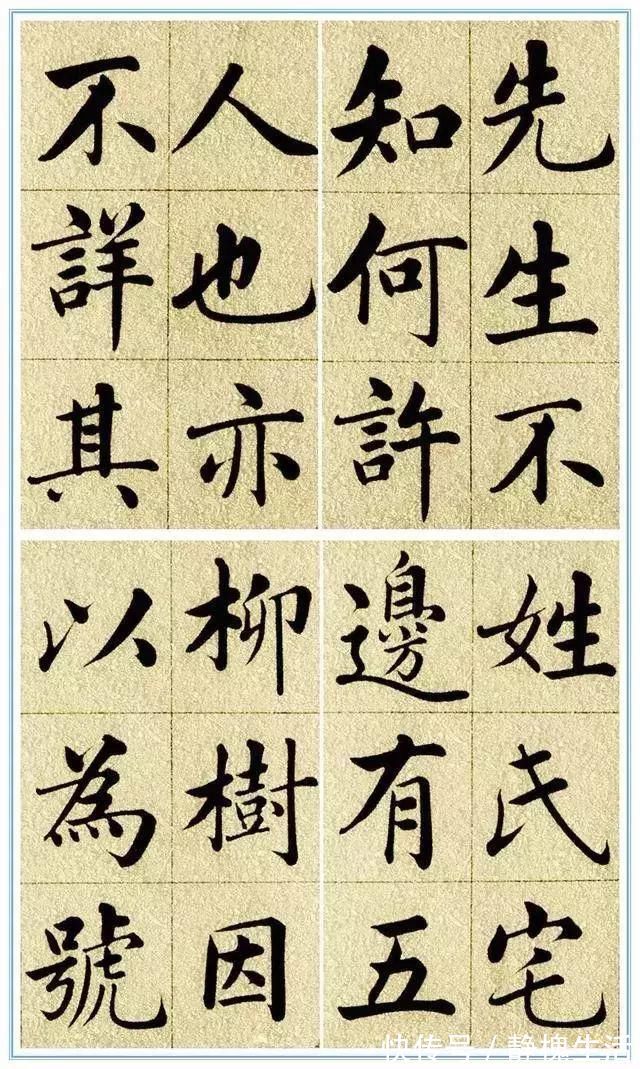 先生不
知何許
人也亦
不詳其
姓氏宅
邊有五
柳樹因
以為號
快传号 / 静槐生活